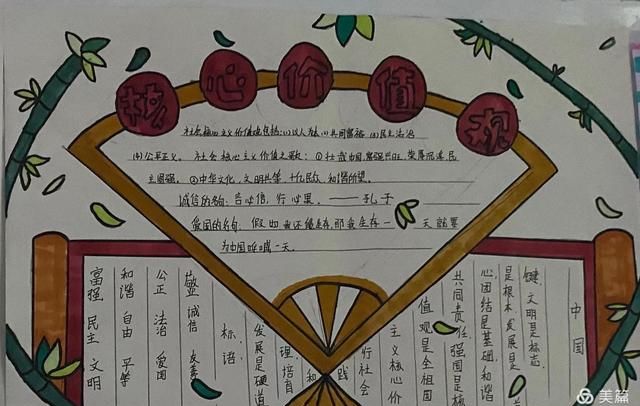 核心价值观
社会核心主义价值观包括:(1)以人为本(2)共同富裕(3)民主法治
(4)公平正义。社会核心主义价值之歌:①壮我中国,富强兴旺,荣辱沉浮,民
主图强。②中华文化,文明共举,十亿民众,和谐所望。
诚信的名句:言必信,行必果。——孔子
爱国的名句:假如我还能生存,那我生存一天就要
为中国呼喊一天。
中国
键,文明是标志,
是根本,发展是
心,团结是基础,和谐
共同责任,强国是核
值观是全祖国
主义核心价
行社会
践
和
理,培育
发展是硬道
标语:
敬业 诚信 友善
公正 法治 爱国
和谐 自由 平等
富强 民主 文明
美篇